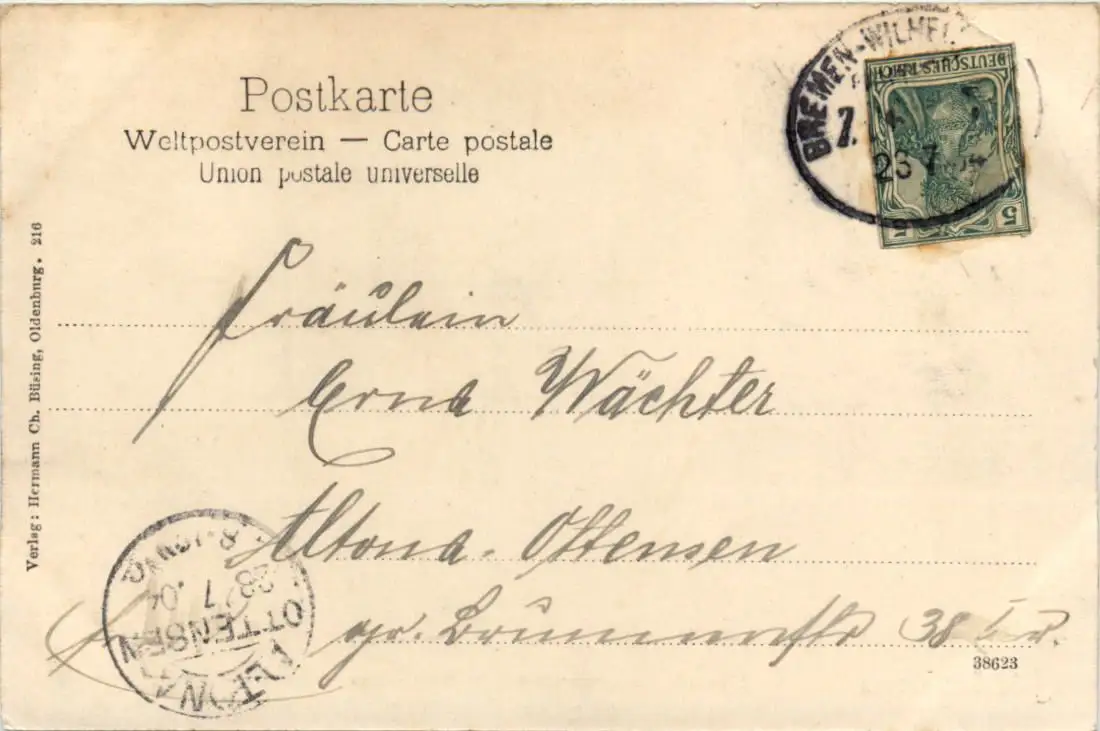 Postkarte
Weltpostverein — Carte postale
Union postale universelle
BREMEN-WILHEL
23 7 04
DEUTSCHES REICH
5 5
Verlag: Hermann Ch. Büsing, Oldenburg. 216
Fräulein
Erna Wächter
Altona-Ottensen
gr. Brunnenstr 38
38623
OTTENSEN
7 04